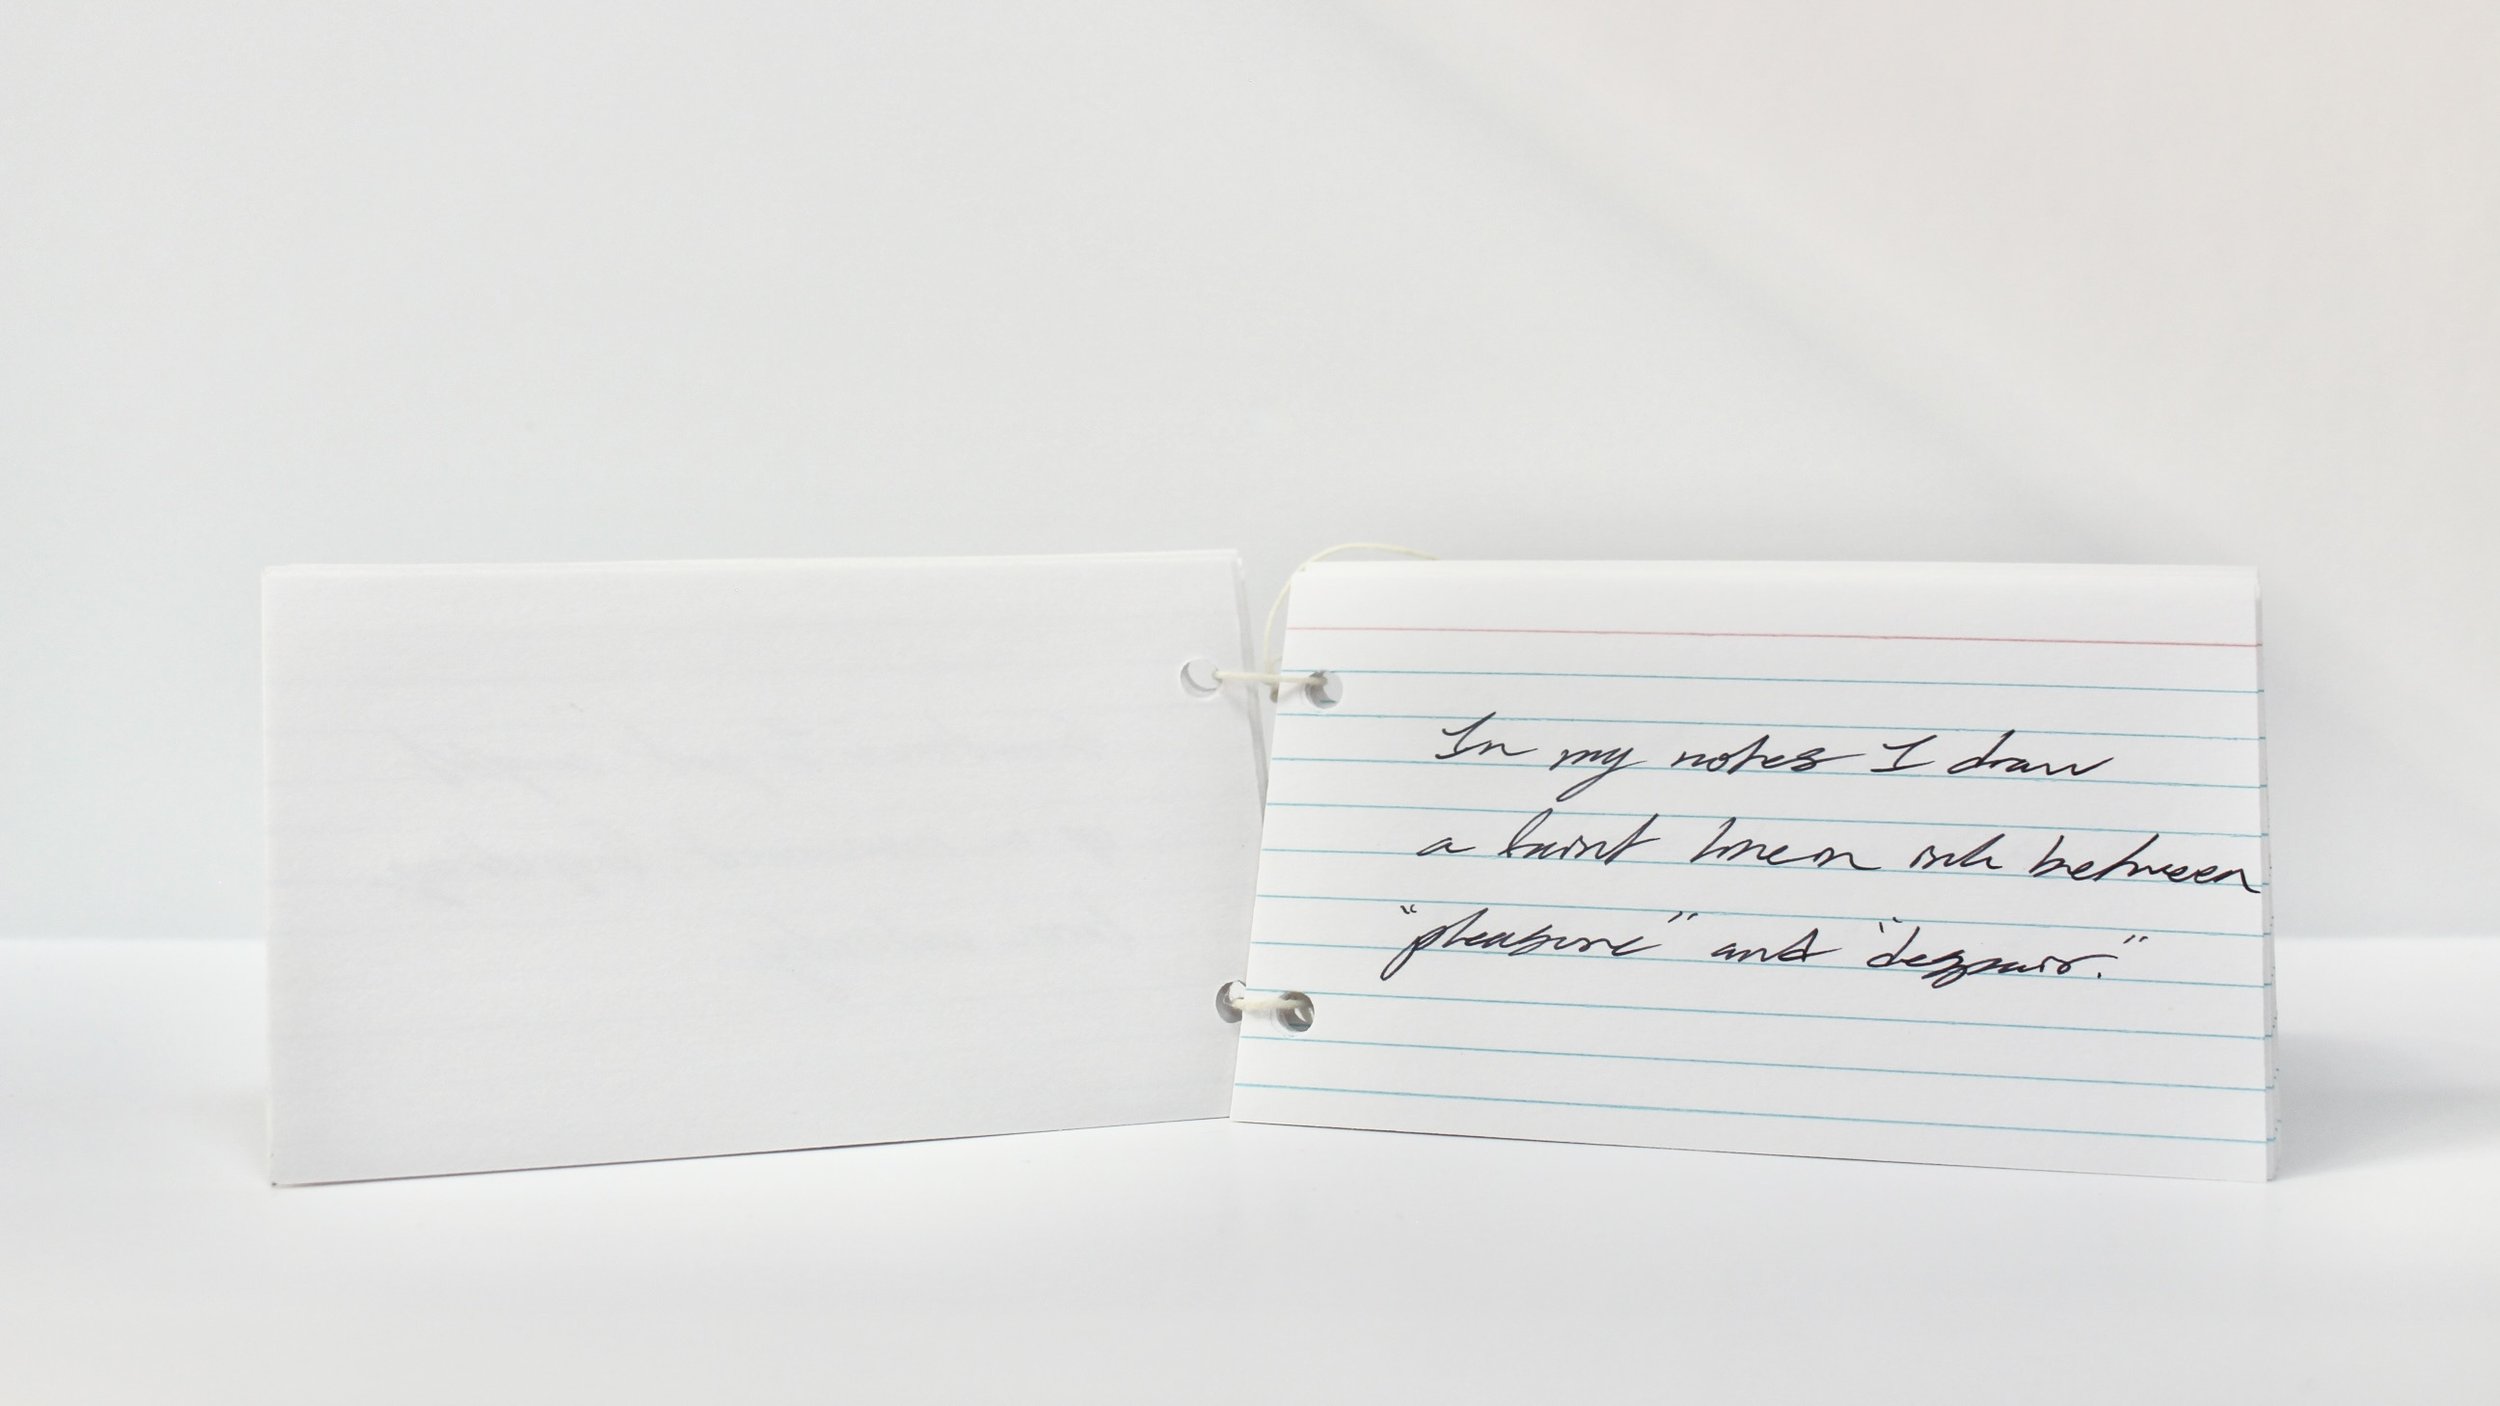 In my notes I draw
a faint line in ink between
"pleasure" and "despair."